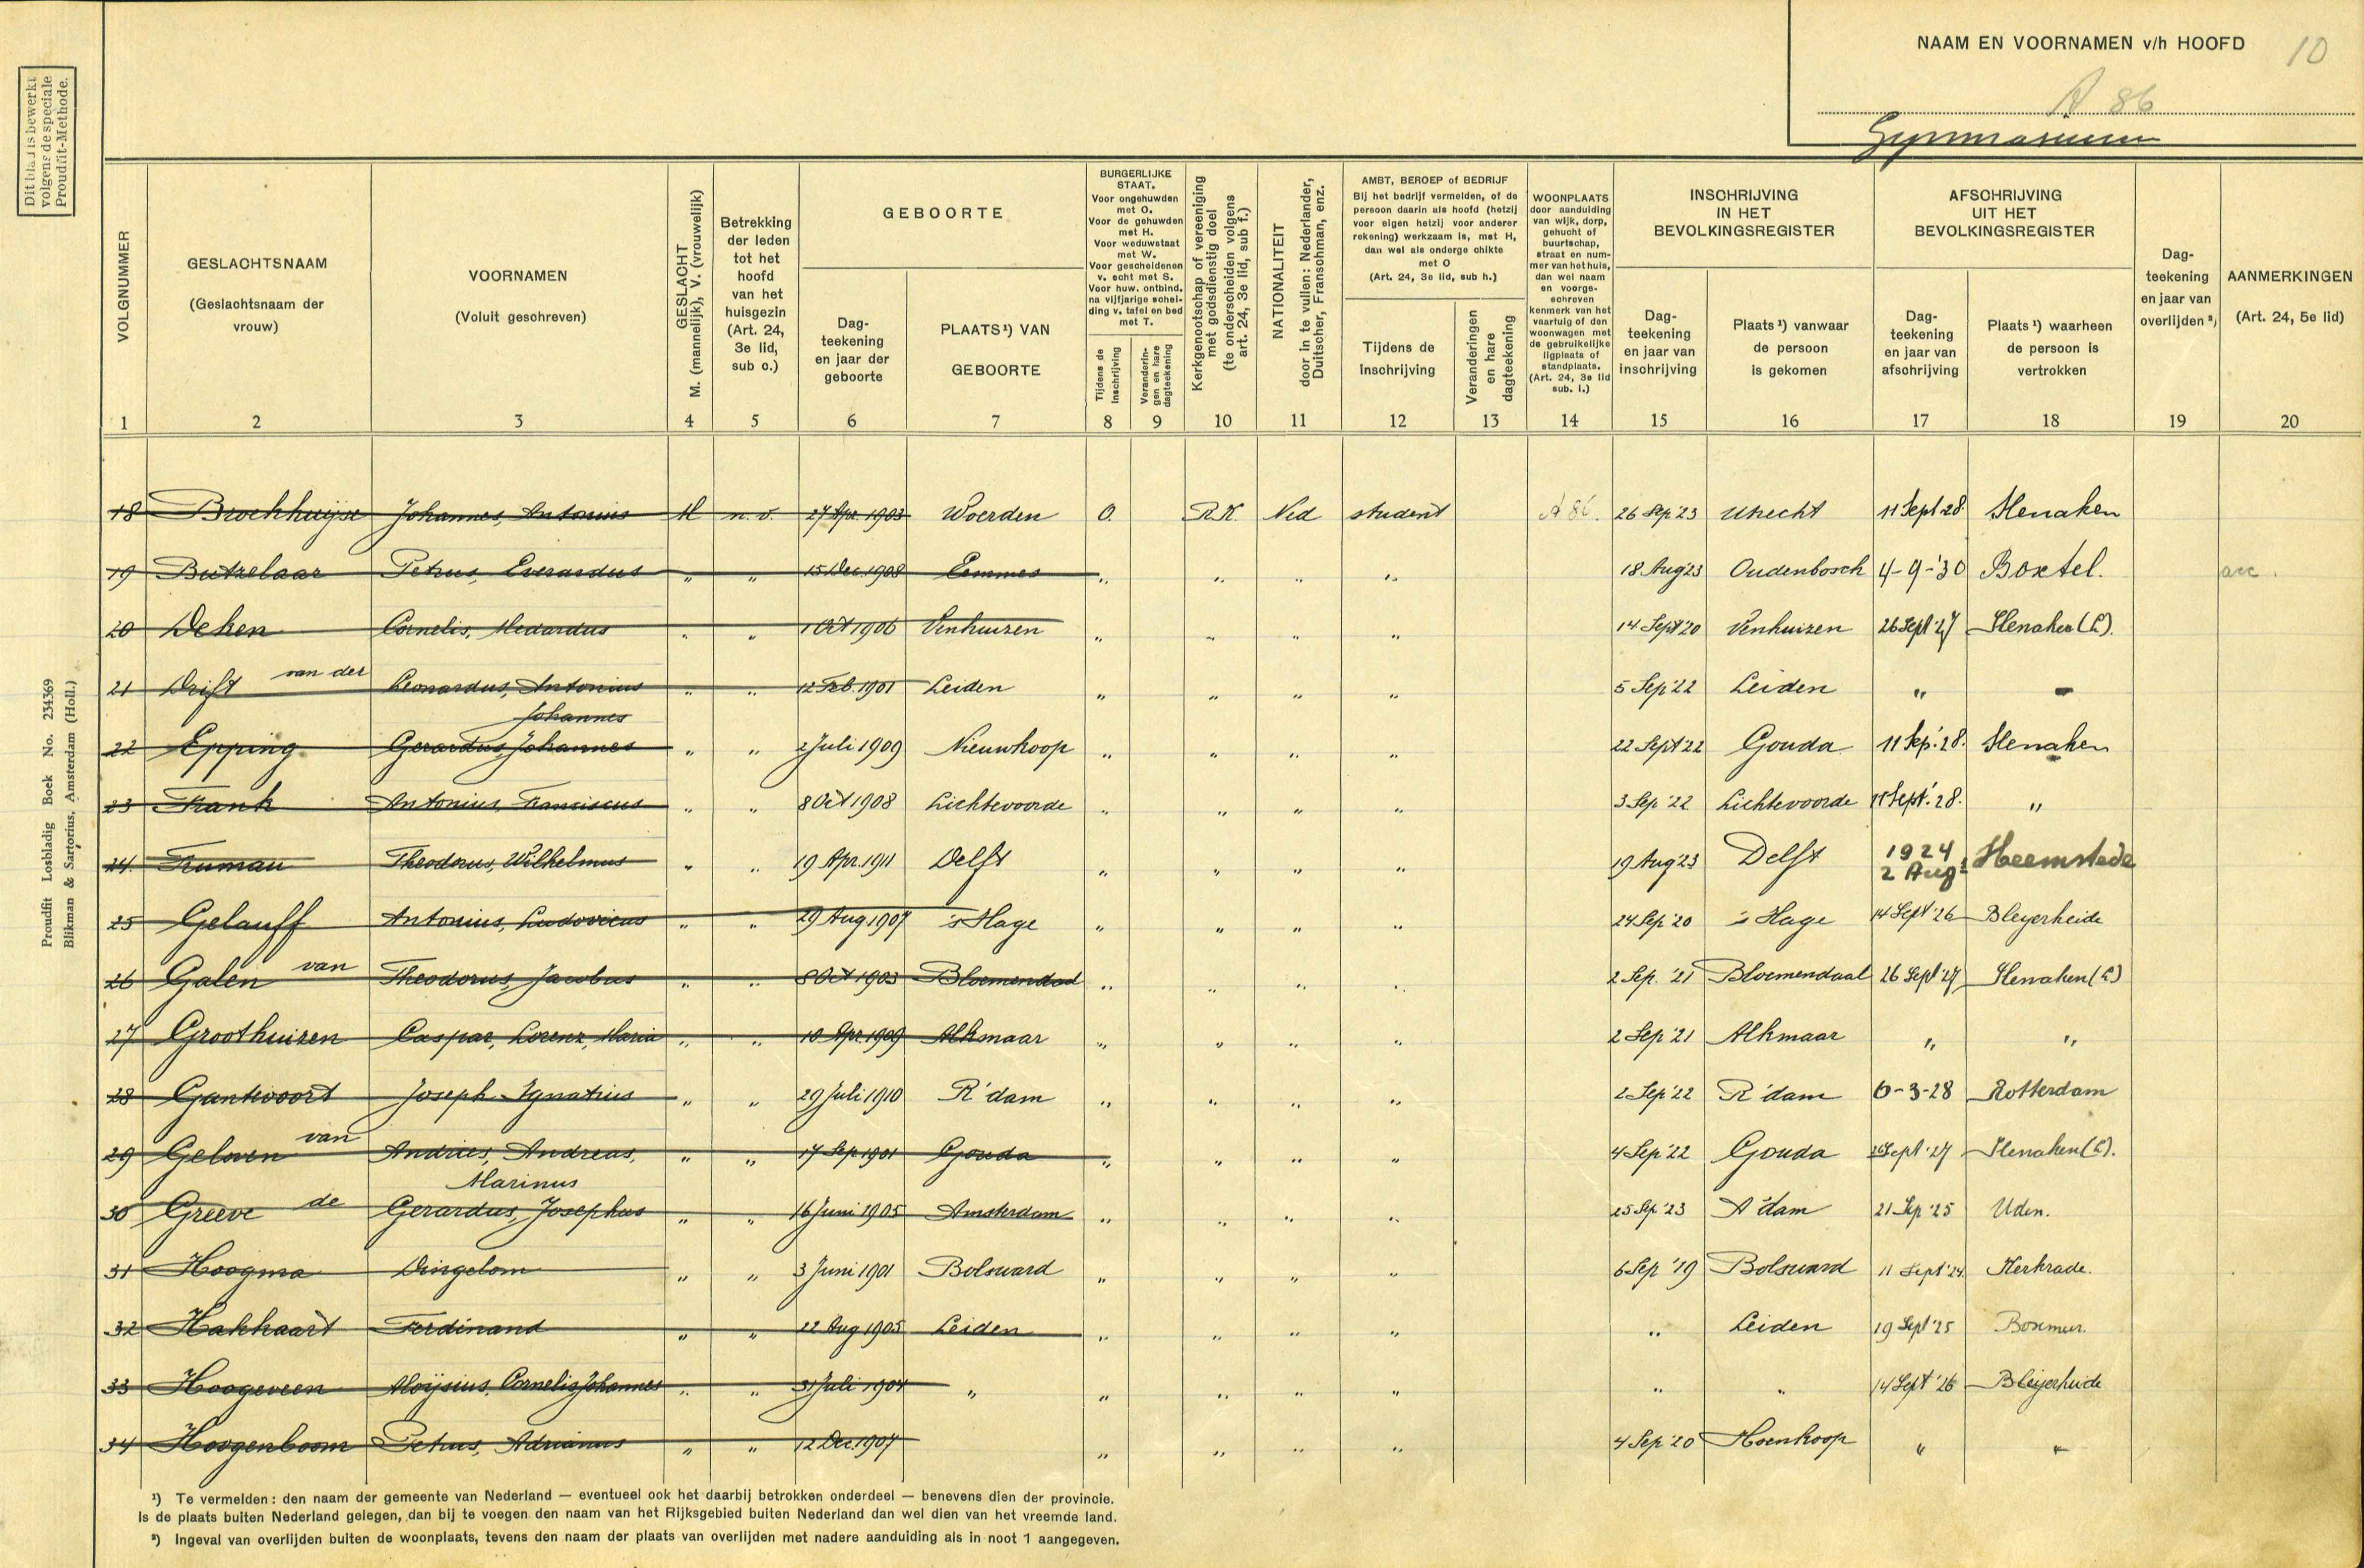 NAAM EN VOORNAMEN v/h HOOFD 10
A 86
Gymnasium
Dit blad is bewerkt
volgens de speciale
Proudfit-Methode.
Proudfit Losbladig Boek No. 234369
Blikman & Sartorius, Amsterdam (Holl.)
VOLGNUMMER
GESLACHTSNAAM
(Geslachtsnaam der
vrouw)
VOORNAMEN
(Voluit geschreven)
GESLACHT
M. (mannelijk), V. (vrouwelijk)
Betrekking
der leden
tot het
hoofd
van het
huisgezin
(Art. 24,
3e lid,
sub c.)
GEBOORTE
Dag-
teekening
en jaar der
geboorte
PLAATS¹) VAN
GEBOORTE
BURGERLIJKE
STAAT.
Voor ongehuwden
met O.
Voor de gehuwden
met H.
Voor weduwstaat
met W.
Voor gescheidenen
v. echt met S.
Voor huw. ontbind.
na vijfjarige schei-
ding v. tafel en bed
met T.
Tijdens de
inschrijving
Veranderin-
gen en hare
dagteekening
Kerkgenootschap of vereeniging
met godsdienstig doel
(te onderscheiden volgens
art. 24, 3e lid, sub f.)
NATIONALITEIT
door in te vullen: Nederlander,
Duitscher, Franschman, enz.
AMBT, BEROEP of BEDRIJF
Bij het bedrijf vermelden, of de
persoon daarin als hoofd (hetzij
voor eigen hetzij voor anderer
rekening) werkzaam is, met H,
dan wel als ondergeschikte
met O
(Art. 24, 3e lid, sub h.)
Tijdens de
inschrijving
Veranderingen
en hare
dagteekening
WOONPLAATS
door aanduiding
van wijk, dorp,
gehucht of
buurtschap,
straat en num-
mer van het huis,
dan wel naam
en voorge-
schreven
kenmerk van het
vaartuig of den
woonwagen met
de gebruikelijke
ligplaats of
standplaats.
(Art. 24, 3e lid
sub. i.)
INSCHRIJVING
IN HET
BEVOLKINGSREGISTER
Dag-
teekening
en jaar van
inschrijving
Plaats¹) vanwaar
de persoon
is gekomen
AFSCHRIJVING
UIT HET
BEVOLKINGSREGISTER
Dag-
teekening
en jaar van
afschrijving
Plaats¹) waarheen
de persoon is
vertrokken
Dag-
teekening
en jaar van
overlijden ²)
AANMERKINGEN
(Art. 24, 5e lid)
1 2 3 4 5 6 7 8 9 10 11 12 13 14 15 16 17 18 19 20
18 Brockhuijse Johannes, Antonius M n.v. 27 Apr. 1903 Woerden O. R.K. Ned student A 86. 26 Sep 23 Utrecht 11 Sept 28. Slenaken
19 Butzelaar Petrus, Everardus „ „ 15 Dec. 1908 Eemnes „ „ „ „ 18 Aug '23 Oudenbosch 4-9-'30 Boxtel. acc.
20 Deken Cornelis, Medardus „ „ 1 Oct 1906 Venhuizen „ „ „ „ 14 Sept '20 Venhuizen 26 Sept '27 Slenaken (L).
21 Drift van der Leonardus, Antonius „ „ 12 Feb. 1901 Leiden „ „ „ „ 5 Sep '22 Leiden „ „
Johannes
22 Epping Gerardus, Johannes „ „ 2 Juli 1909 Nieuwkoop „ „ „ „ 22 Sept 22 Gouda 11 Sep. '28. Slenaken
23 Frank Antonius, Franciscus „ „ 8 Oct 1908 Lichtevoorde „ „ „ „ 3 Sep '22 Lichtevoorde 11 Sept. '28. „
24. Truman Theodorus, Wilhelmus „ „ 19 Apr. 1911 Delft „ „ „ „ 19 Aug '23 Delft 1924 2 Aug Heemstede
25 Gelauff Antonius, Ludovicus „ „ 29 Aug 1907 's Hage „ „ „ „ 24 Sep '20 's Hage 14 Sept '26 Bleyerheide
26 Galen van Theodorus, Jacobus „ „ 8 Oct 1903 Bloemendaal „ „ „ „ 2 Sep. '21 Bloemendaal 26 Sept '27 Slenaken (L)
27 Groothuizen Caspar, Lorenz, Maria „ „ 10 Apr. 1909 Alkmaar „ „ „ „ 2 Sep '21 Alkmaar „ „
28 Gantevoort Joseph Ignatius „ „ 29 Juli 1910 R'dam „ „ „ „ 2 Sep '22 R'dam 6-3-28 Rotterdam
29 Geloven van Andries, Andreas, „ „ 17 Sep 1901 Gouda „ „ „ „ 4 Sep '22 Gouda 26 Sept '27 Slenaken (L).
Marinus
30 Greeve de Gerardus, Josephus „ „ 16 Juni 1905 Amsterdam „ „ „ „ 25 Sep '23 A'dam 21 Sep '25 Uden.
31 Hoogma Dingelom „ „ 3 Juni 1901 Bolsward „ „ „ „ 6 Sep '19 Bolsward 11 Sept '24. Kerkrade.
32 Hakkaart Ferdinand „ „ 22 Aug 1905 Leiden „ „ „ „ „ Leiden 19 Sept '25 Boxmeer.
33 Hoogeveen Aloijsius, Cornelis Johannes „ „ 31 Juli 1904 „ „ „ „ „ „ „ 14 Sept '26 Bleyerheide
34 Hoogenboom Petrus, Adrianus „ „ 12 Dec. 1907 „ „ „ „ 4 Sep '20 Hoenkoop „ „
¹) Te vermelden: den naam der gemeente van Nederland — eventueel ook het daarbij betrokken onderdeel — benevens dien der provincie.
Is de plaats buiten Nederland gelegen, dan bij te voegen den naam van het Rijksgebied buiten Nederland dan wel dien van het vreemde land.
²) Ingeval van overlijden buiten de woonplaats, tevens den naam der plaats van overlijden met nadere aanduiding als in noot 1 aangegeven.